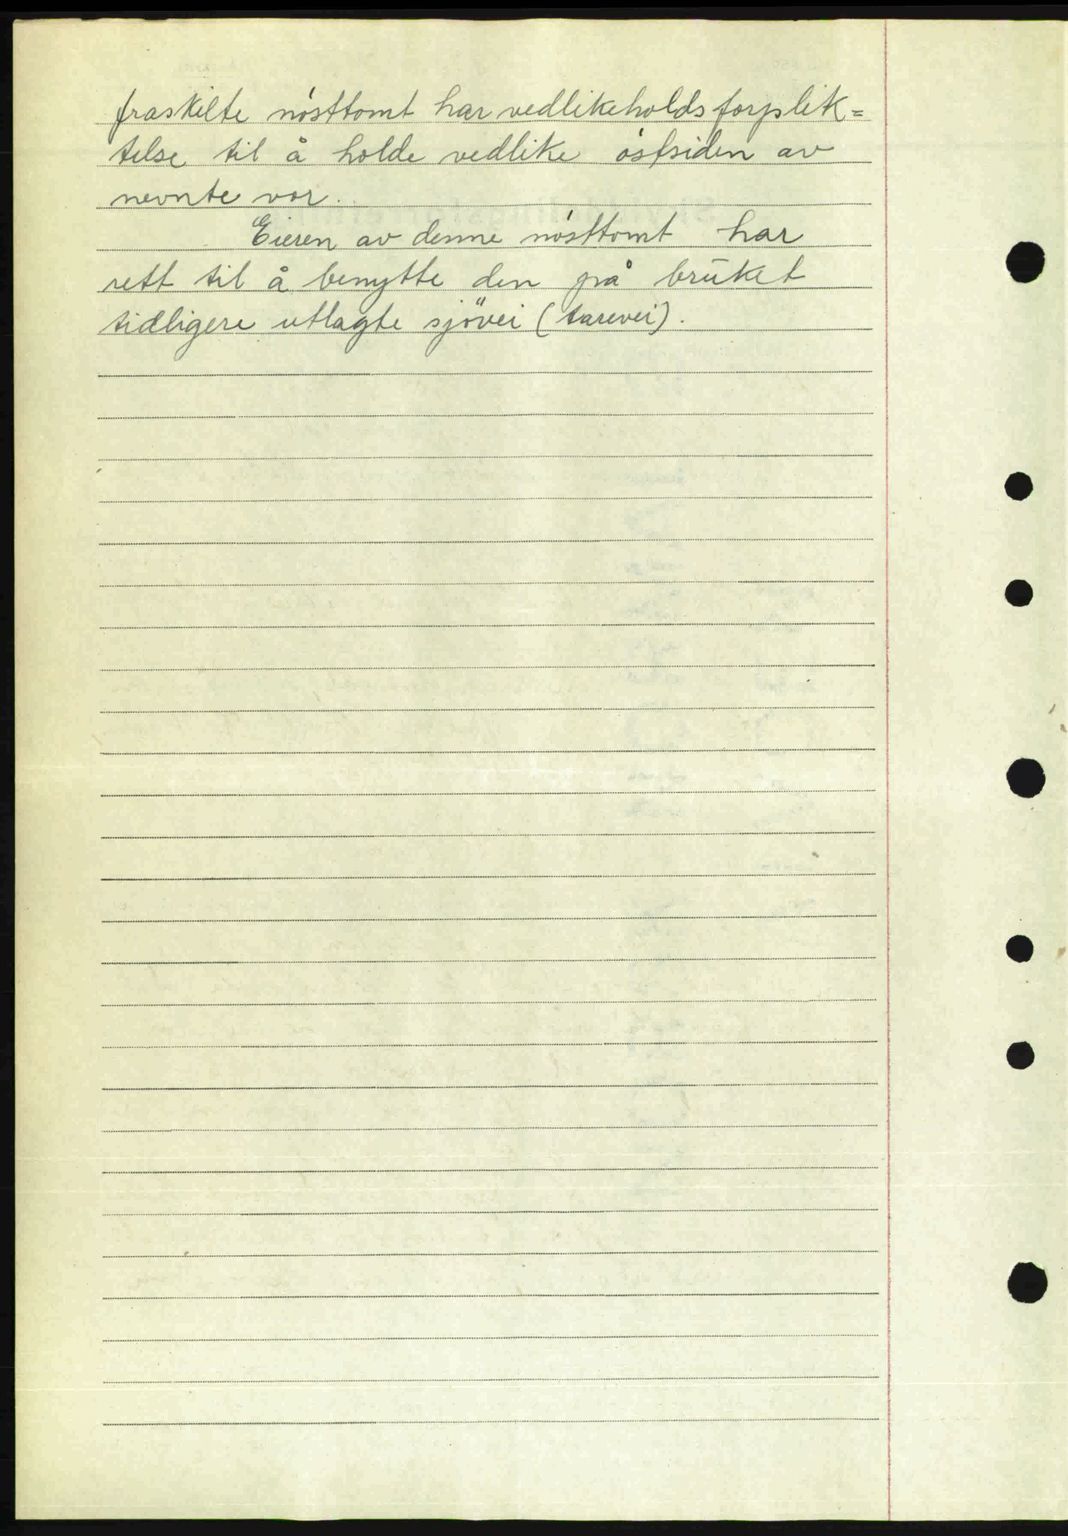 fraskilte nösttomt har vedlikeholdsforplik=
telse til å holde vedlike östsiden av
nevnte vor.
Eieren av denne nösttomt har
rett til å benytte den på brüket
tidligere utlagte sjövei (tarevei).